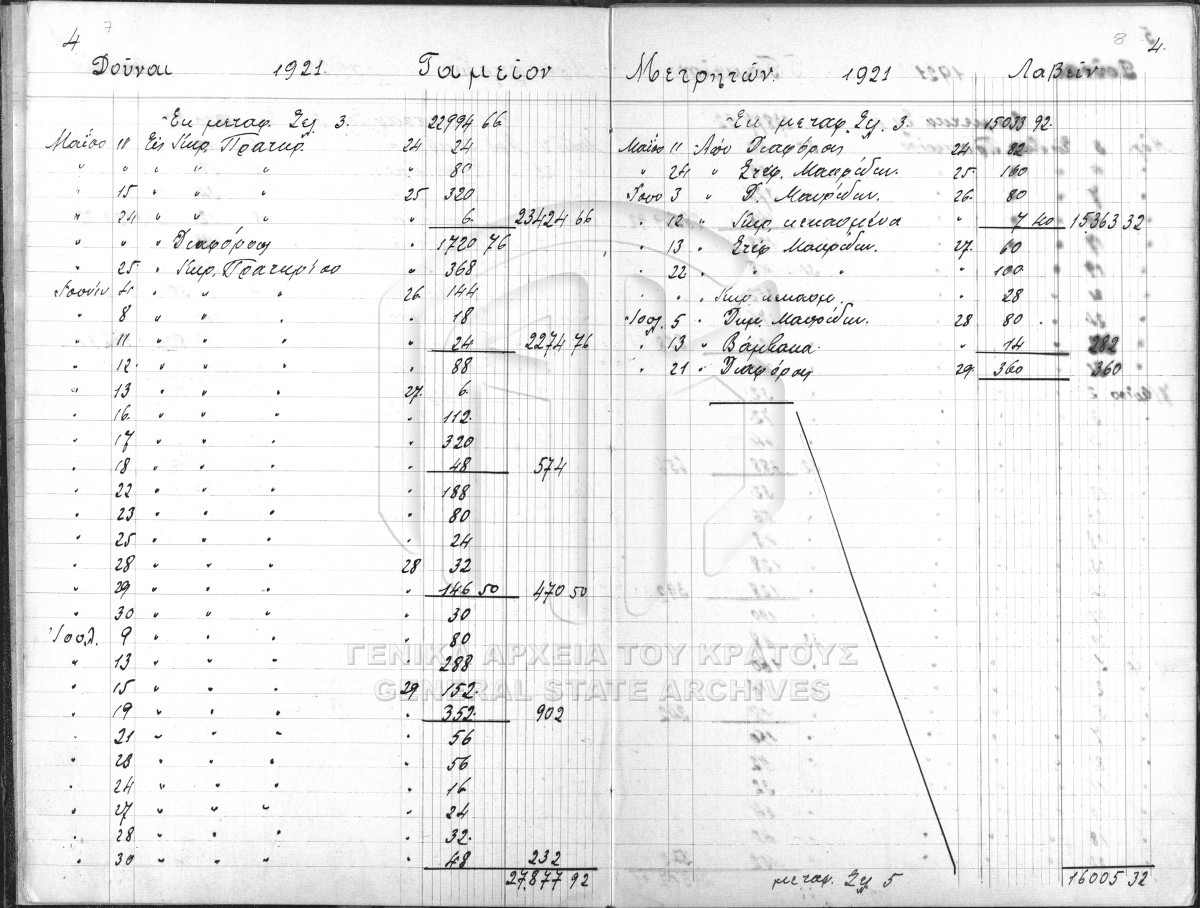 4 7
Δοῦναι 1921. Ταμεῖον
Ἐκ μεταφ. Σελ 3. 22994 66
Μαΐου 11 Εἰς Κυρ. Πρατηρ. 24 24
" " " " " " 80
" 15 " " " 25 320
" 24 " " " " 6 23424 66
" " " Διαφόρους " 1720 76
" 25 " Κυρ. Πρατηρίου " 368
" " " 26 144
" 8 " " " " 18
" 11 " " " " 24 2274 76
" 12 " " " " 88
" 13 " " " 27 6
" 16 " " " " 112
" 17 " " " " 320
" 18 " " " " 48 574
" 22 " " " " 188
" 23 " " " " 80
" 25 " " " " 24
" 28 " " " 28 32
" 29 " " " " 146 50 470 50
" 30 " " " " 30
Ἰουλ. 9 " " " " 80
" 13 " " " " 288
" 15 " " " 29 152
" 19 " " " " 352 902
" 21 " " " " 56
" 23 " " " " 56
" 24 " " " " 16
" 27 " " " " 24
" 28 " " " " 32
" 30 " " " " 48 232
27.877 92
8 4.
Μετρητῶν. 1921 Λαβεῖν
Ἐκ μεταφ. Σελ 3. 15033 92
Μαΐου 11 Ἀπὸ Διαφόρους 24 82
" 24 " Στεφ. Μαυρίδην. 25 160
3 " Δ. Μαυρίδην. 26 80
" 12 " " 7 40 15363 32
" 13 " Στεφ Μαυρίδην. 27 60
" 22 " " " " 100
" " " " 28
Ἰουλ. 5 " Δημ. Μαυρίδην. 28 80
" 13 " Βάμβακα " 14 282
" 21 " Διαφόρους 29 360 360
μεταφ. Σελ 5 16005 32
ΓΕΝΙΚΑ ΑΡΧΕΙΑ ΤΟΥ ΚΡΑΤΟΥΣ
GENERAL STATE ARCHIVES